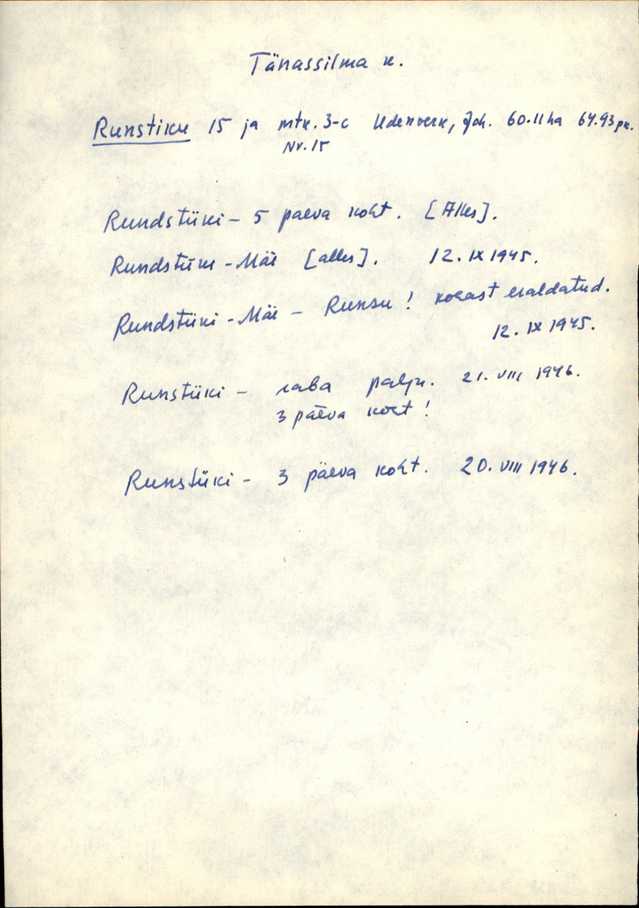 Tänassilma k.
Runstiku 15 ja mtk. 3-c Udenverk, Joh. 60.11 ha 64.93 pn.
Nr. 15
Rundstüki - 5 päeva koht. [Alles].
Rundstüki - Mäe [alles]. 12. IX 1945.
Rundstüki - Mäe - Runsu! kohast eraldatud.
12. IX 1945.
Runstüki - raba palju. 21. VIII 1946.
3 päeva koht!
Runstüki - 3 päeva koht. 20. VIII 1946.